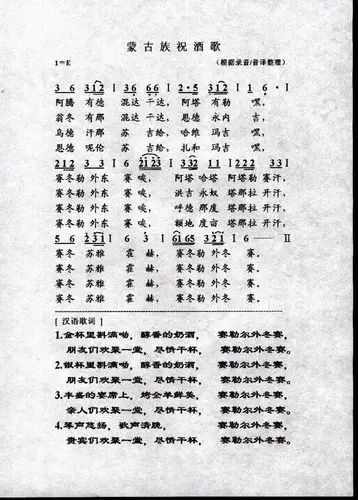 蒙古族祝酒歌
1=E （根据录音/音译整理）
3 6 312 | 3 6 6 | 2·5 312 | 6 - |
阿腾 有德 混达 干达， 阿塔 有勒 嘿，
翁冬 有那 混达 干达， 恩德 永内 吉，
乌德 汗那 苏 吉给， 哈维 玛吉 嘿，
恩德 呢伦 苏 吉给， 扎和 玛吉 嘿，
212 3 3 | 6 2123 | 3312 1112 | 222 33 |
赛冬勒 外东 赛 唉， 阿塔 哈塔 阿塔勒 赛汗，
赛冬勒 外东 赛 唉， 洪吉 永奴 塔那拉 开汗，
赛冬勒 外东 赛 唉， 呼德 那度 塔那拉 开汗，
赛冬勒 外东 赛 唉， 额地 度亩 塔那拉 开汗，
5 6 231 | 6 3 | 6165 321 | 6 - ||
赛冬 苏雅 霍 赫， 赛冬勒 外冬 赛。
赛冬 苏雅 霍 赫， 赛冬勒 外冬 赛。
赛冬 苏雅 霍 赫， 赛冬勒 外冬 赛。
赛冬 苏雅 霍 赫， 赛冬勒 外冬 赛。
［汉语歌词］
1.金杯里斟满呦，醇香的奶酒， 赛勒尔外冬赛，
朋友们欢聚一堂，尽情干杯， 赛勒尔外冬赛。
2.银杯里斟满呦，醇香的奶酒， 赛勒尔外冬赛，
朋友们欢聚一堂，尽情干杯， 赛勒尔外冬赛。
3.丰盛的宴席上，烤全羊鲜美， 赛勒尔外冬赛，
亲人们欢聚一堂，尽情干杯， 赛勒尔外冬赛。
4.琴声悠扬，歌声清脆， 赛勒尔外冬赛，
贵宾们欢聚一堂，尽情干杯， 赛勒尔外冬赛。